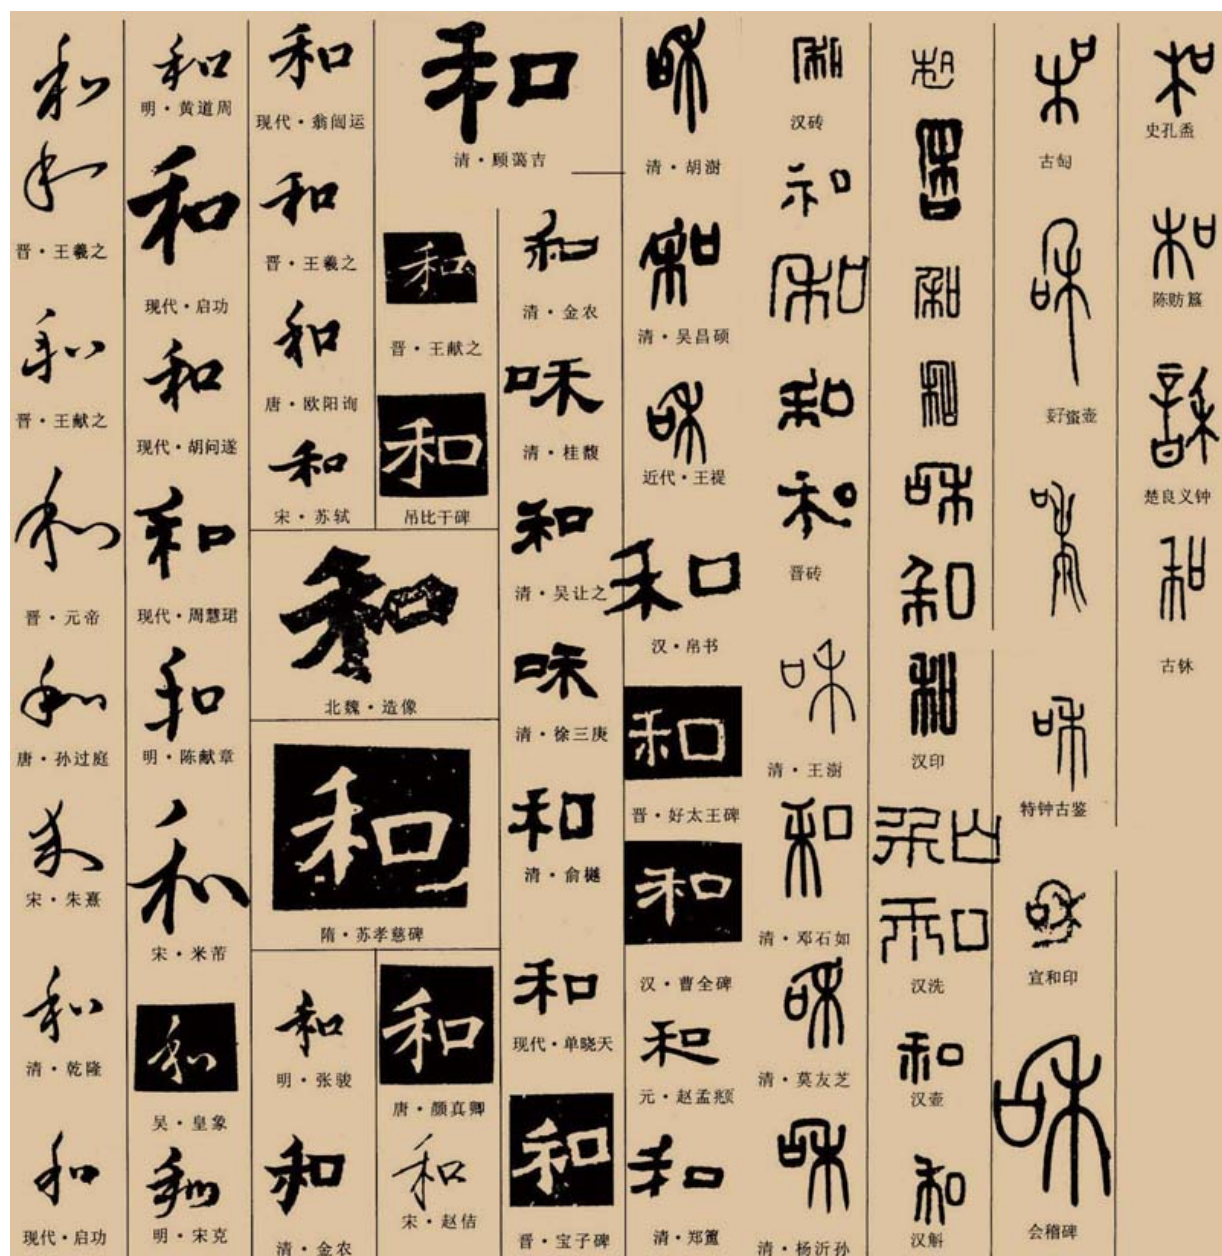 和
和
晋·王羲之
和
晋·王献之
和
晋·元帝
和
唐·孙过庭
和
宋·朱熹
和
清·乾隆
和
现代·启功
和
明·黄道周
和
现代·启功
和
现代·胡问遂
和
现代·周慧珺
和
明·陈献章
和
宋·米芾
和
吴·皇象
和
明·宋克
和
现代·翁闿运
和
晋·王羲之
和
唐·欧阳询
和
宋·苏轼
和
北魏·造像
和
隋·苏孝慈碑
和
明·张骏
和
清·金农
和
清·顾蔼吉
和
晋·王献之
和
吊比干碑
和
唐·颜真卿
和
宋·赵佶
和
清·金农
咊
清·桂馥
和
清·吴让之
咊
清·徐三庚
和
清·俞樾
和
现代·单晓天
和
晋·宝子碑
咊
清·胡澍
和
清·吴昌硕
咊
近代·王禔
和
汉·帛书
和
晋·好太王碑
和
汉·曹全碑
和
元·赵孟頫
和
清·郑簠
和
汉砖
和
和
和
和
晋砖
咊
清·王澍
和
清·邓石如
咊
清·莫友芝
咊
清·杨沂孙
和
和
和
和
咊
和
和
汉印
和
和
汉洗
和
汉壶
和
汉斛
和
古匋
咊
咊
咊
特钟古鉴
咊
宣和印
咊
会稽碑
和
史孔盉
和
楚良义钟
和